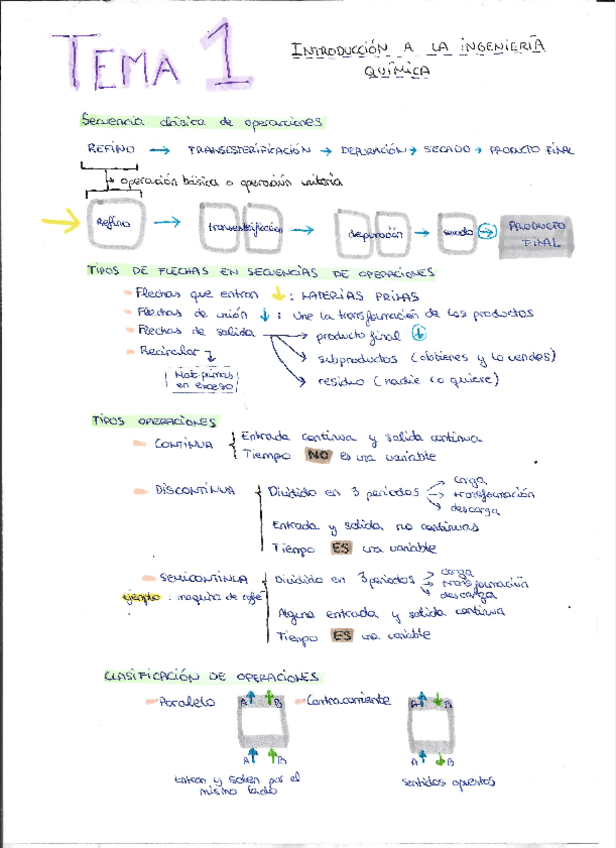 TEMA 1
INTRODUCCIÓN A LA INGENIERÍA
QUÍMICA
Secuencia clásica de operaciones
REFINO → TRANSESTERIFICACIÓN → DEPURACIÓN → SECADO → PRODUCTO FINAL
operación básica o operación unitaria
Refino → transesterificación → depuración → secado → PRODUCTO FINAL
TIPOS DE FLECHAS EN SECUENCIAS DE OPERACIONES
- Flechas que entran ↓ : MATERIAS PRIMAS
- Flechas de unión ↓ : une la transformación de los productos
- Flechas de salida → producto final ↓
→ subproductos (obtienes y lo vendes)
→ residuo (nadie lo quiere)
- Recircular
Mat. primas
en exceso
TIPOS OPERACIONES
- CONTINUA { Entrada continua y salida continua
Tiempo NO es una variable
- DISCONTINUA { Dividido en 3 periodos → carga
→ transformación
→ descarga
Entrada y salida no continuas
Tiempo ES una variable
- SEMICONTINUA { Dividido en 3 periodos → carga
→ transformación
→ descarga
ejemplo : maquina de café
Alguna entrada y salida continua
Tiempo ES una variable
CLASIFICACIÓN DE OPERACIONES
- Paralelo A↑ ↑B - Contracorriente A↑ ↓B
A↑ ↑B A↑ ↓B
Entran y salen por el
mismo lado
sentidos opuestos